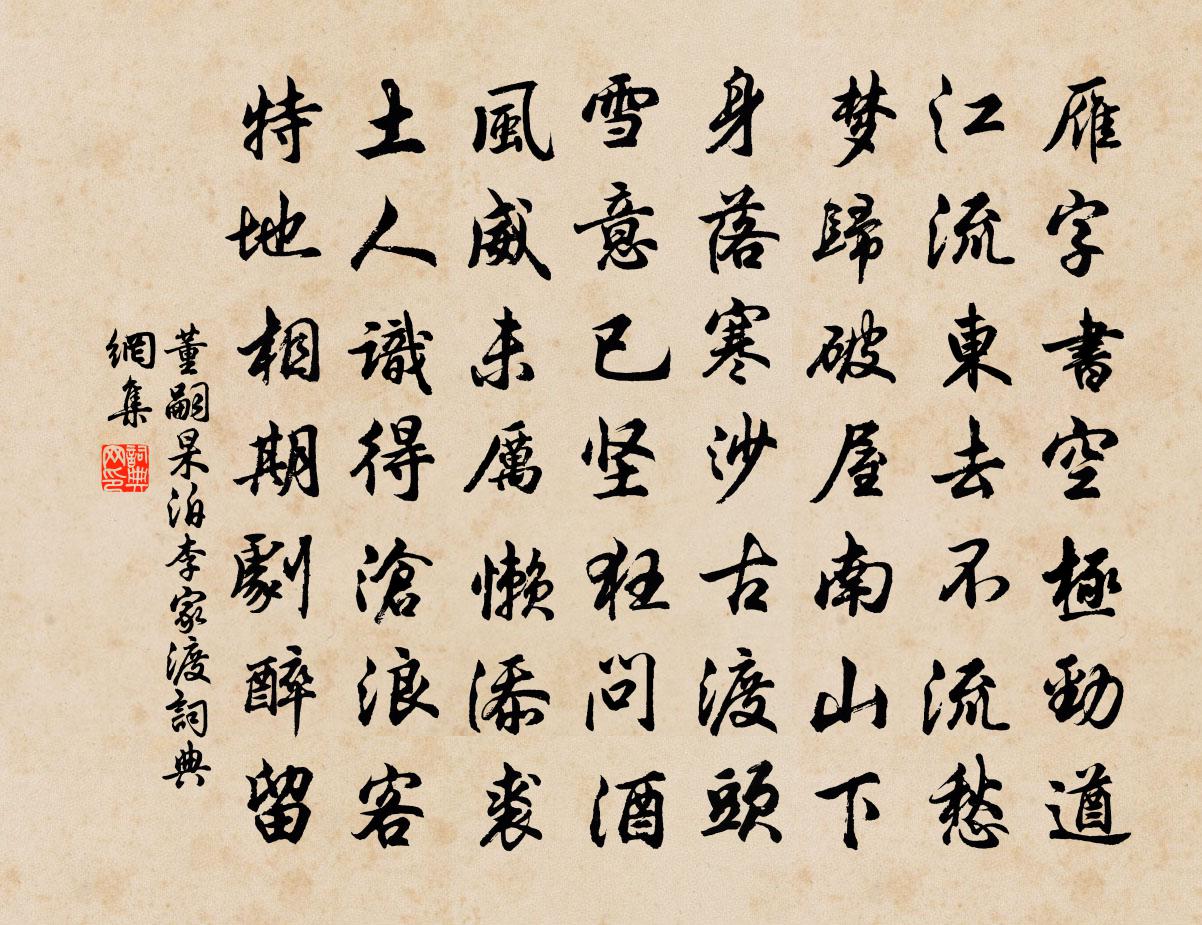 雁字書空極勁遒
江流東去不流愁
梦歸破屋南山下
身落寒沙古渡頭
雪意已坚狂问酒
風威未厲懒添裘
土人識得滄浪客
特地相期劇醉留
董嗣杲泊李家渡詞典
網集
詞典
网印